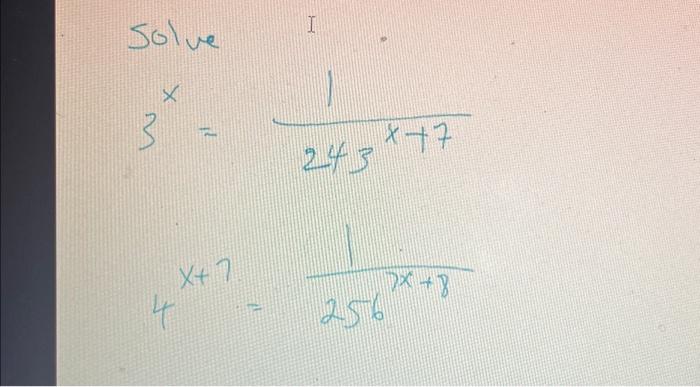 Solve
3^x = 1/243^(x+7)
4^(x+7) = 1/256^(7x+8)